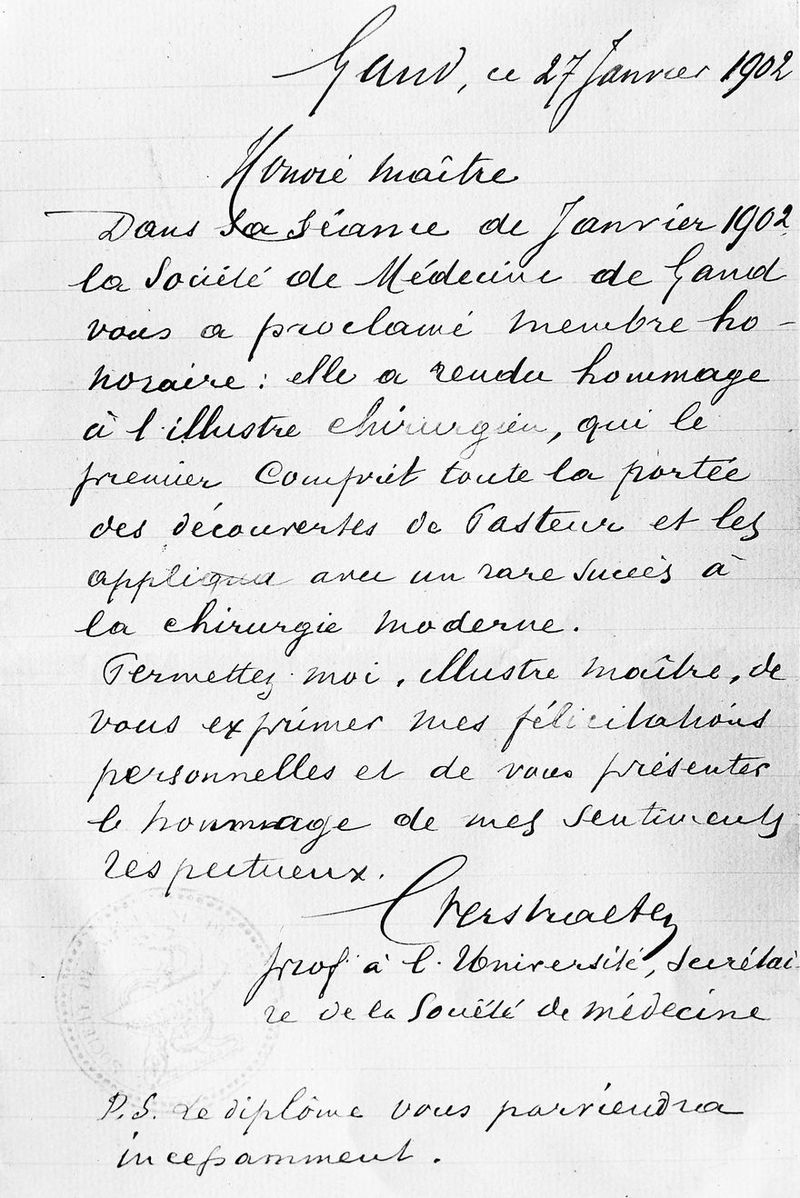 Gand, ce 27 Janvier 1902
Honoré Maître
Dans sa séance de Janvier 1902
la Société de Médecine de Gand
vous a proclamé membre ho-
noraire : elle a rendu hommage
à l'illustre chirurgien, qui le
premier comprit toute la portée
des découvertes de Pasteur et les
appliqua avec un rare succès à
la chirurgie moderne.
Permettez moi, illustre maître, de
vous exprimer mes félicitations
personnelles et de vous présenter
le hommage de mes sentiments
respectueux.
C Verstraeten
prof à l'Université, Secrétai
re de la Société de médecine
P.S. Le diplôme vous parviendra
incessamment.